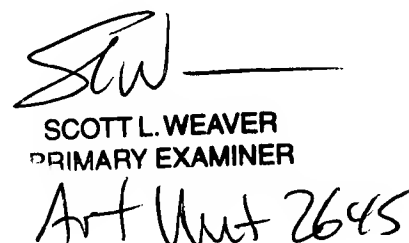 SLW
SCOTT L. WEAVER
PRIMARY EXAMINER
Art Unit 2645